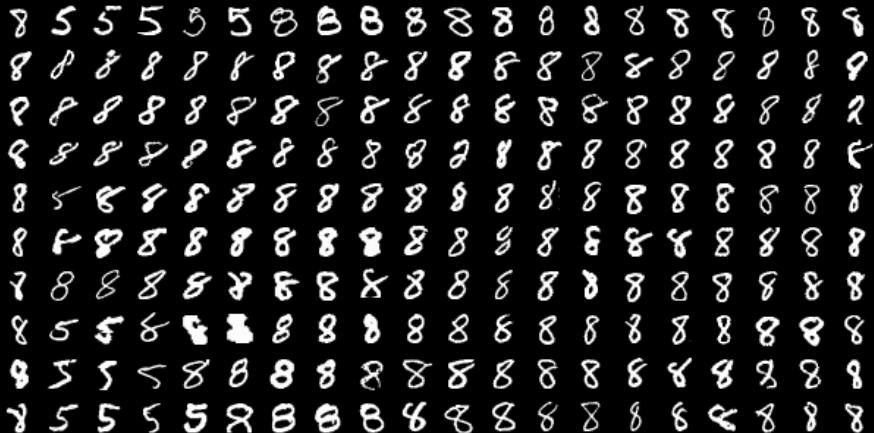 8 5 5 5 5 5 8 8 8 8 8 8 8 8 8 8 8 8 8 8
8 8 8 8 8 8 8 8 8 8 8 8 8 8 8 8 8 8 8 9
8 8 8 8 8 8 8 8 8 8 8 8 8 8 8 8 8 8 8 2
8 8 8 8 8 8 8 8 8 8 2 8 8 8 8 8 8 8 8
8 5 8 8 8 8 8 8 8 8 8 8 8 8 8 8 8 8 8 8
8 8 8 8 8 8 8 8 8 8 8 8 8 8 8 8 8 8 8
8 8 8 8 8 8 8 8 8 8 8 8 8 8 8 8 8 8 8 8
8 5 5 8 8 8 8 8 8 8 8 8 8 8 8 8 8 8
8 5 5 5 8 8 8 8 8 8 8 8 8 8 8 8 8 8 8 8
8 5 5 5 5 8 8 8 8 8 8 8 8 8 8 8 8 8 8 8